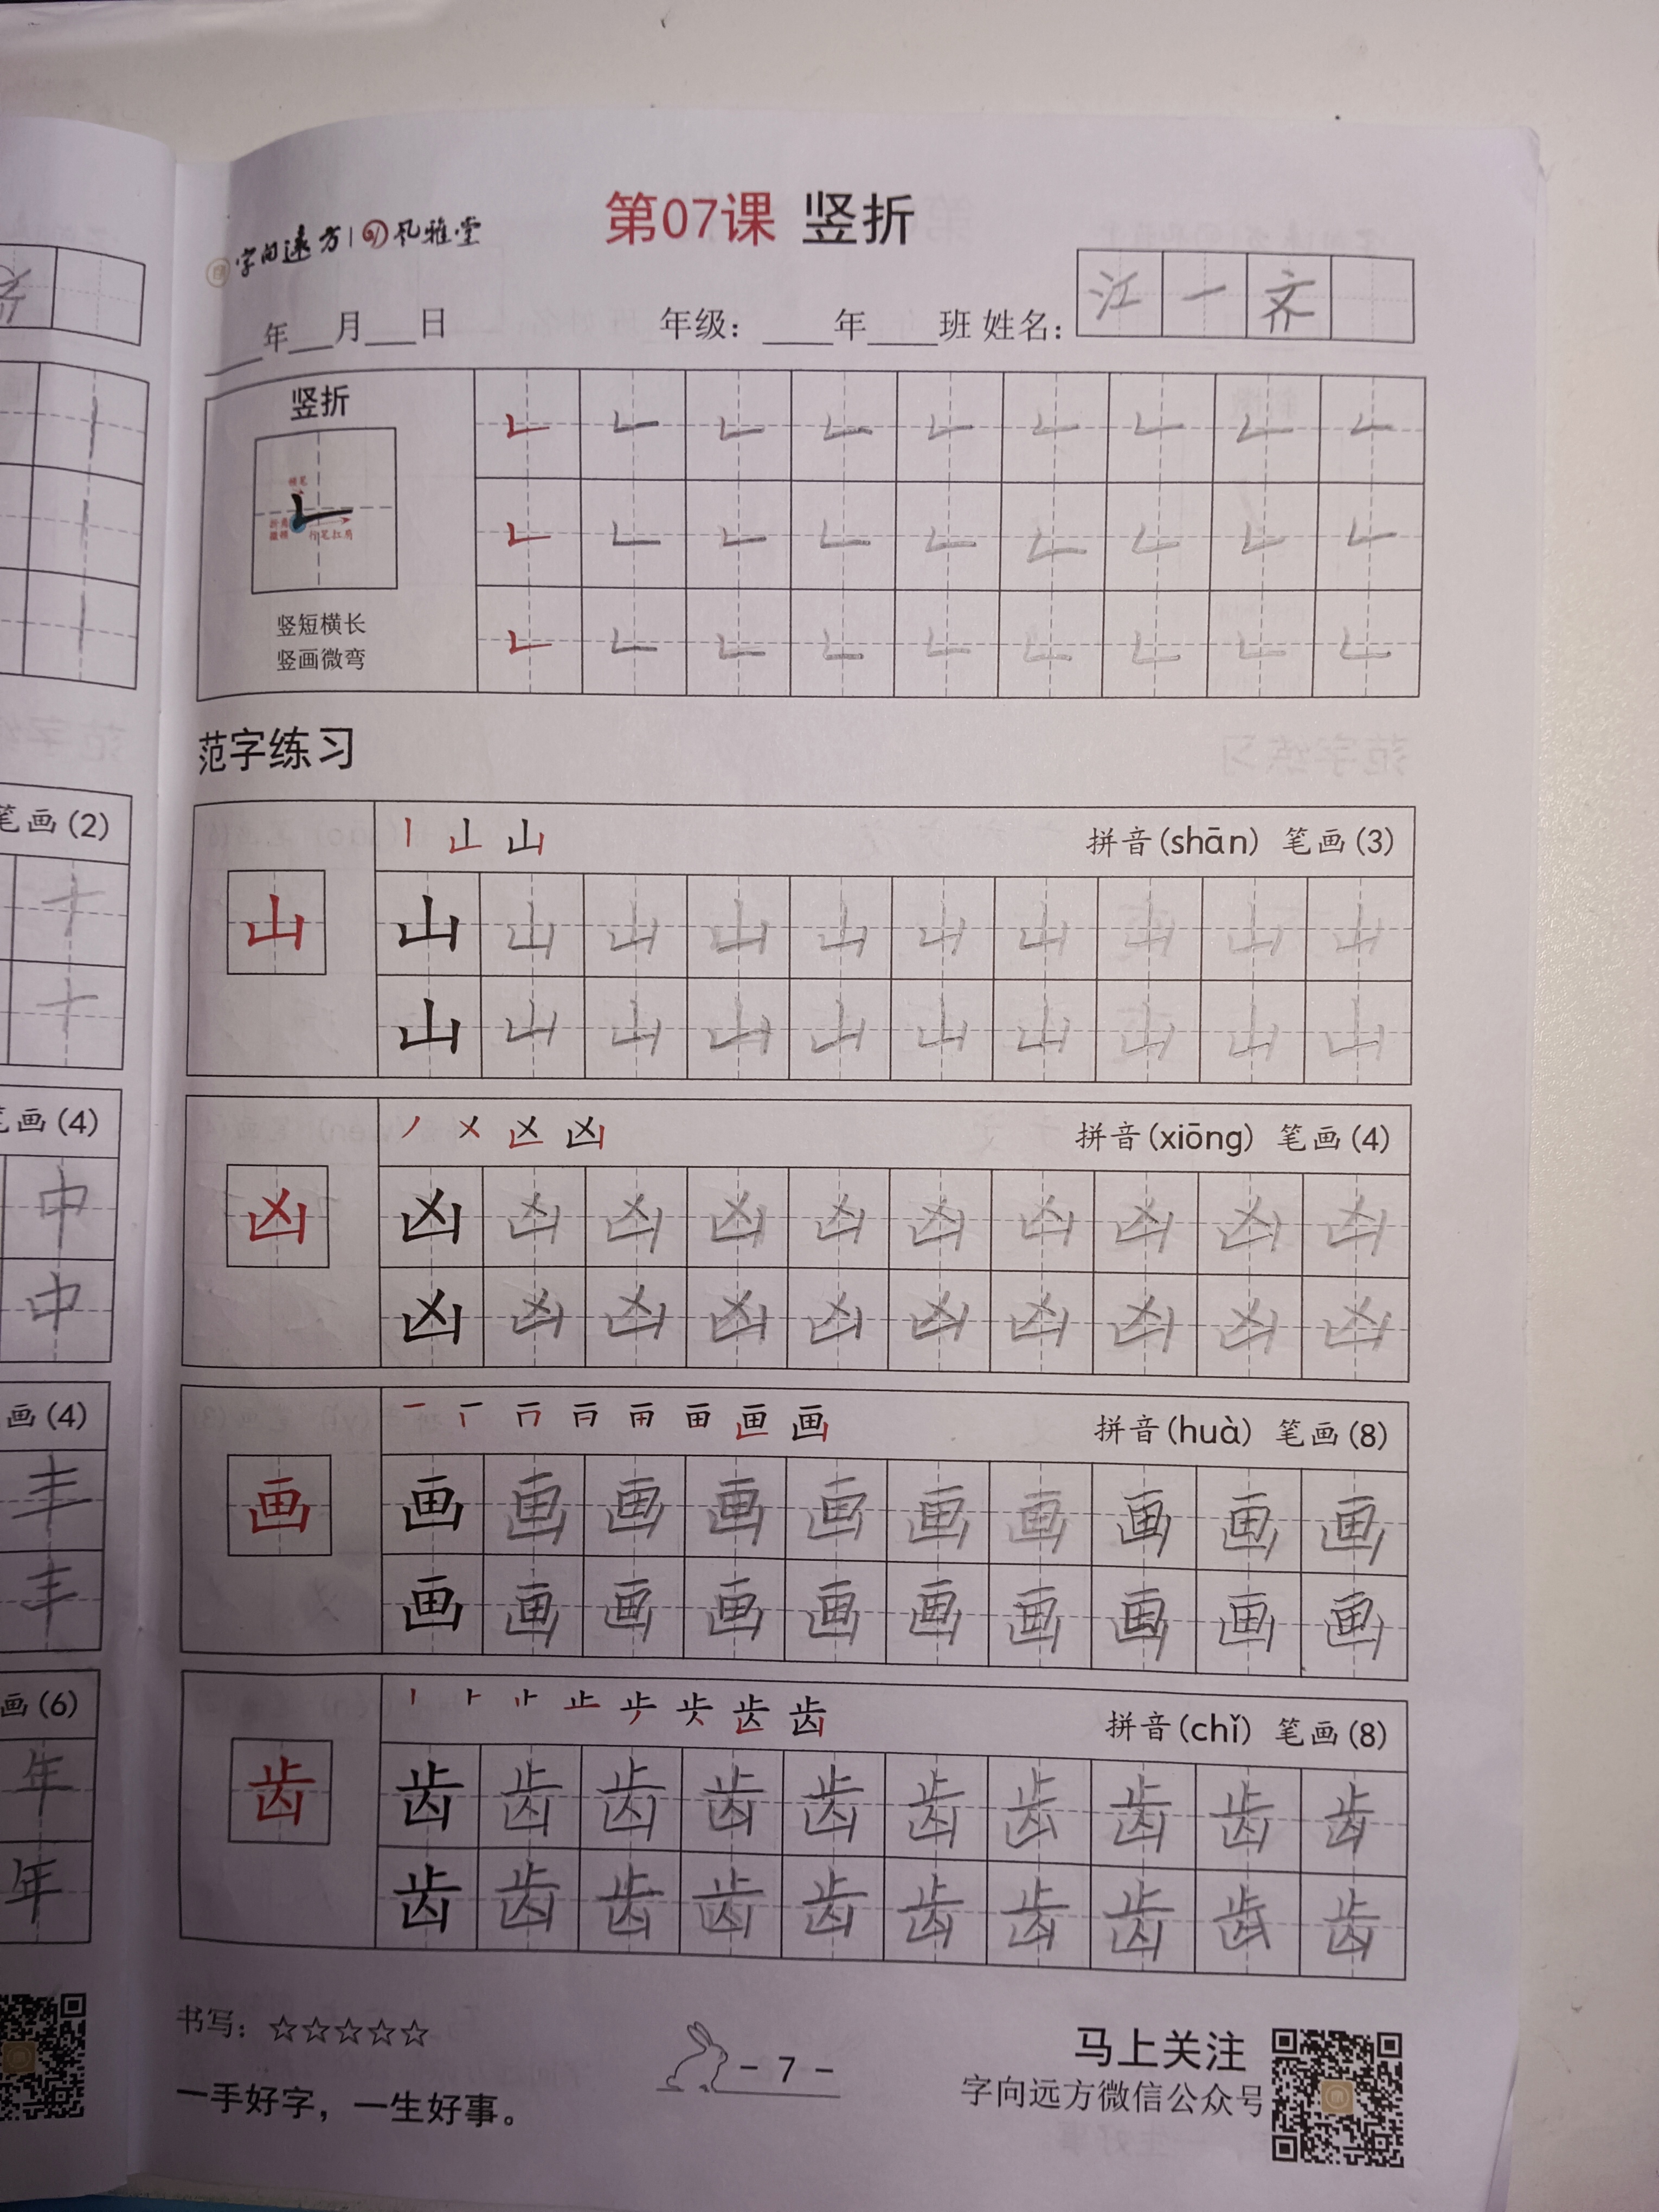 字向远方 | 风雅堂
第07课 竖折
___年___月___日 年级：____年____班 姓名：江一齐
竖折
横笔
折角
行笔扛肩
竖短横长
竖画微弯
范字练习
拼音(shān) 笔画(3)
山 山 山 山 山 山 山 山 山 山 山
山 山 山 山 山 山 山 山 山 山
拼音(xiōng) 笔画(4)
凶 凶 凶 凶 凶 凶 凶 凶 凶 凶 凶
凶 凶 凶 凶 凶 凶 凶 凶 凶 凶
拼音(huà) 笔画(8)
画 画 画 画 画 画 画 画 画 画 画
画 画 画 画 画 画 画 画 画 画
拼音(chǐ) 笔画(8)
齿 齿 齿 齿 齿 齿 齿 齿 齿 齿 齿
齿 齿 齿 齿 齿 齿 齿 齿 齿 齿
书写：☆☆☆☆☆
一手好字，一生好事。
- 7 -
马上关注
字向远方微信公众号
笔画(2)
十
十
笔画(4)
中
中
画(4)
丰
丰
画(6)
年
年